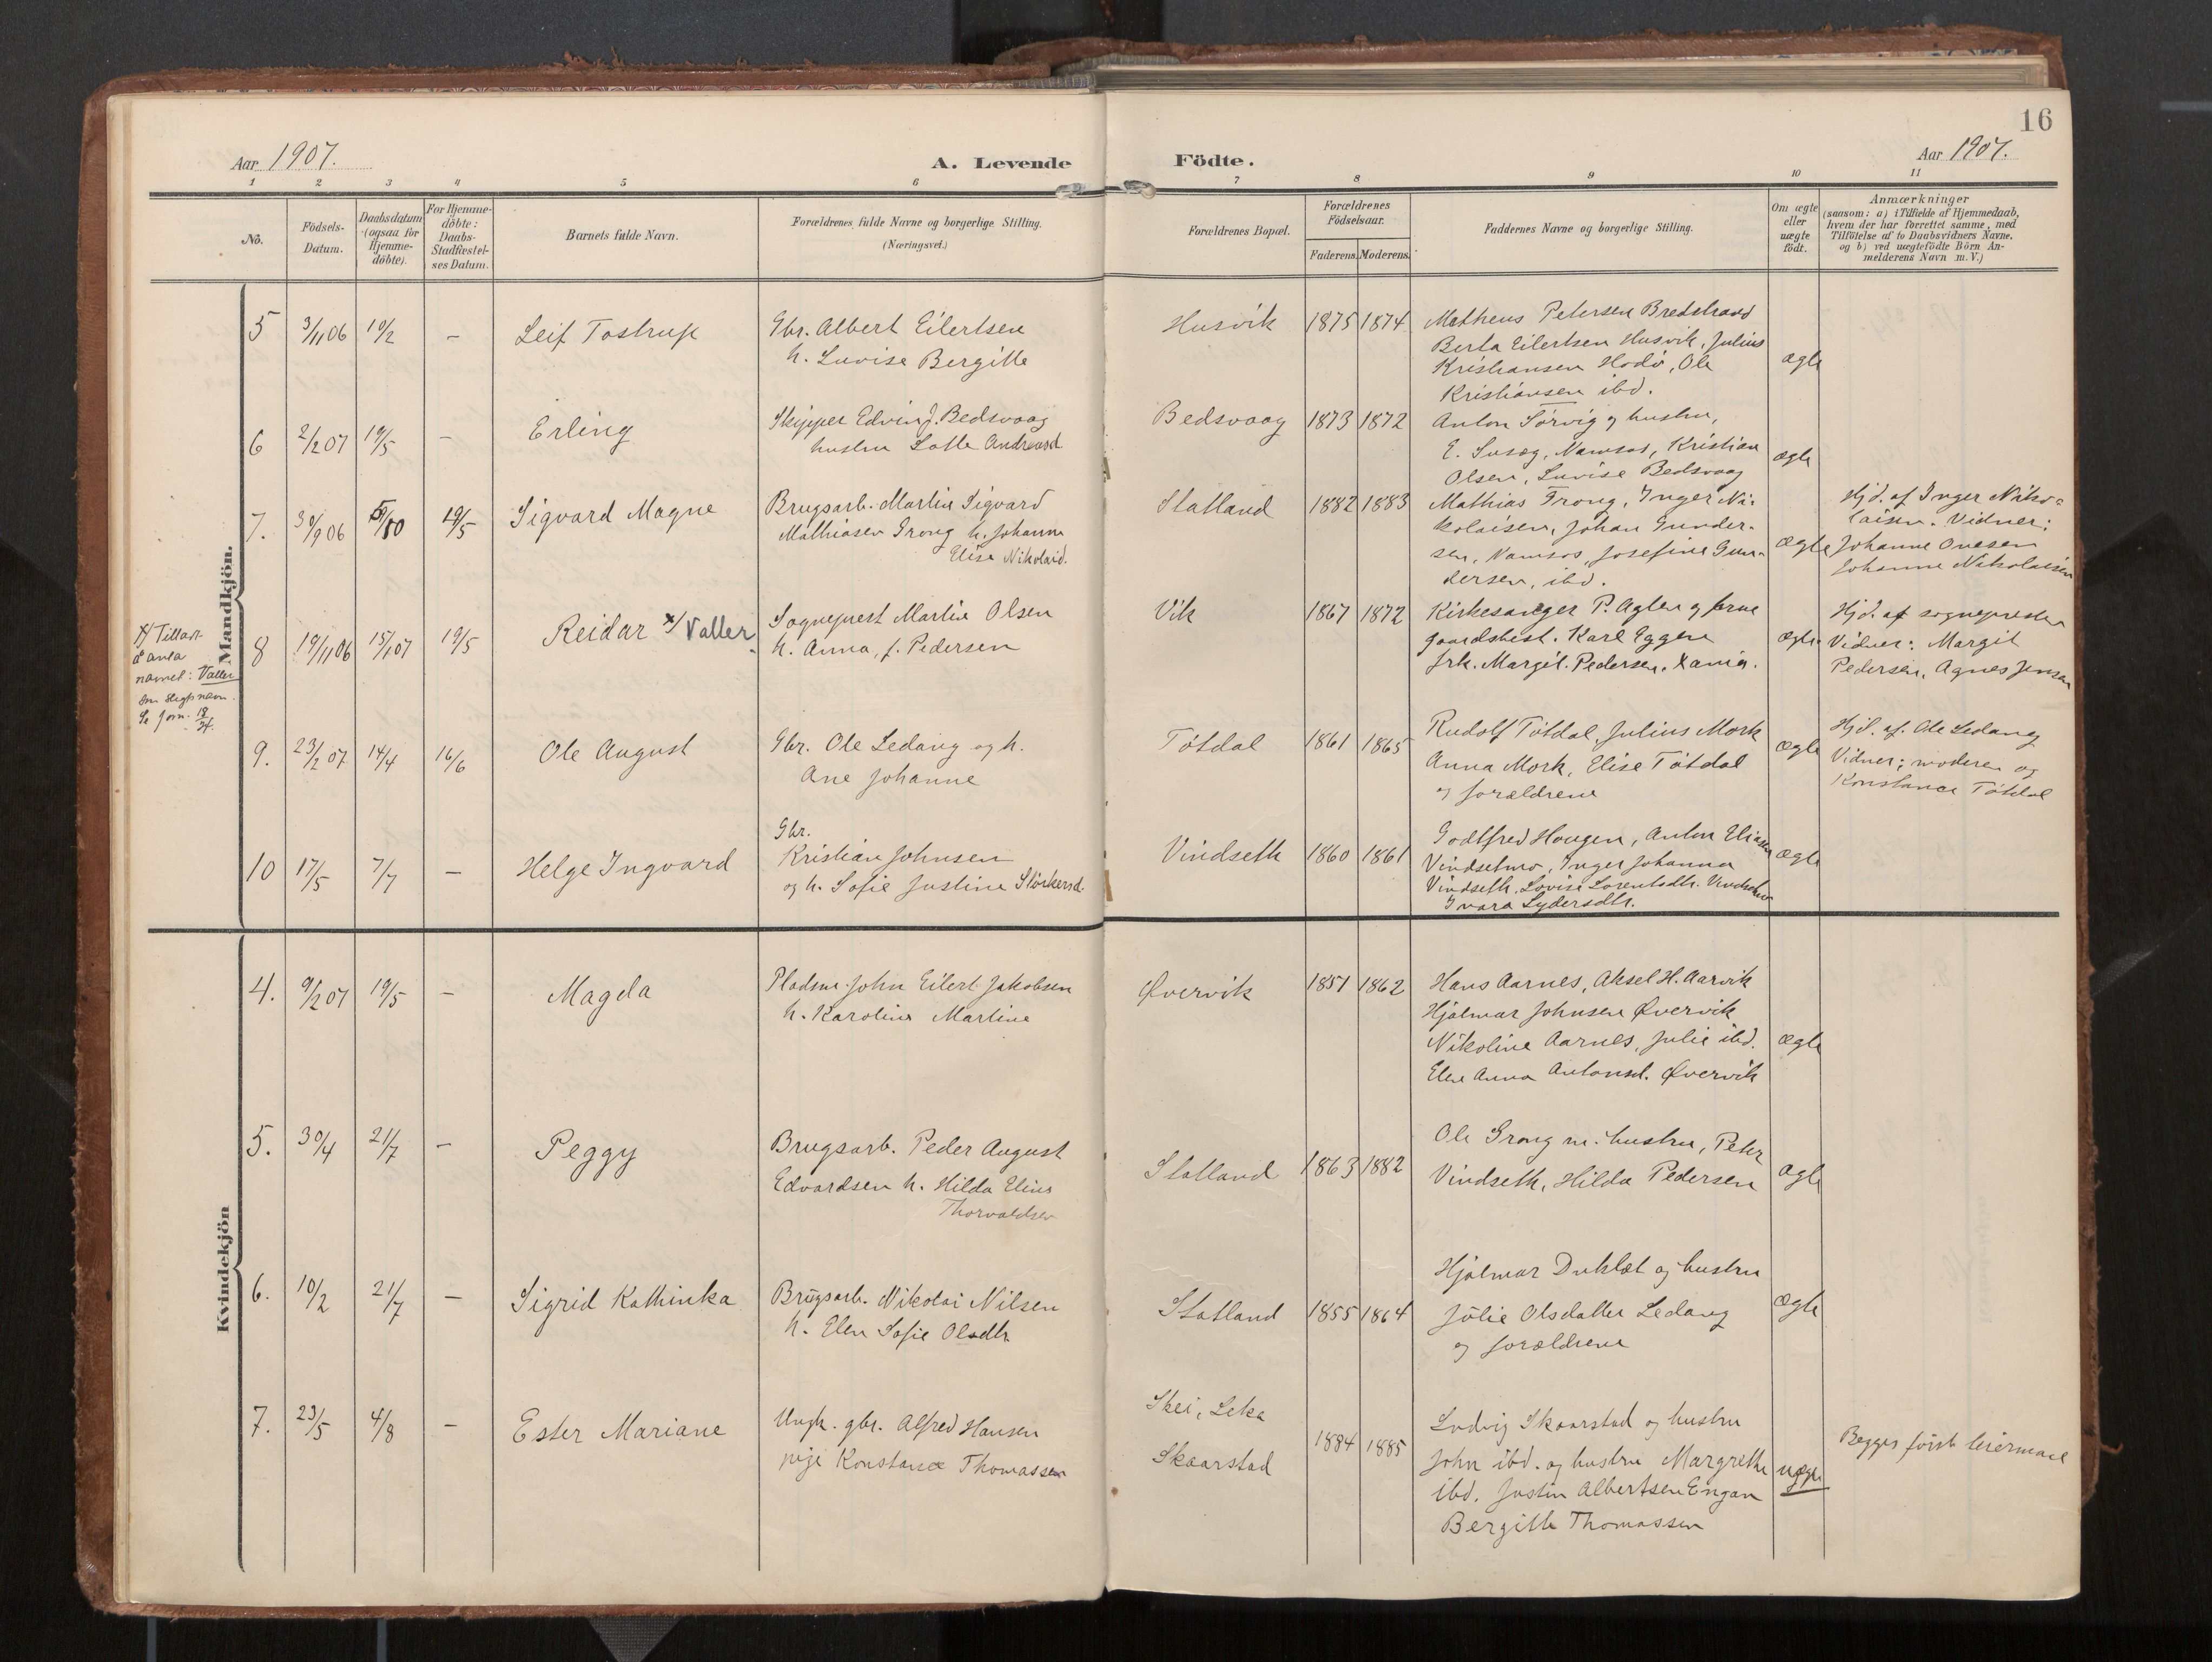 16
Aar 1907.
A. Levende
Födte.
Aar 1907.
1 2 3 4 5 6 7 8 9 10 11
No.
Födsels-
Datum.
Daabsdatum
(ogsaa for
Hjemme-
döbte).
For Hjemme-
döbte:
Daabs-
Stadfæstel-
ses Datum.
Barnets fulde Navn.
Forældrenes fulde Navne og borgerlige Stilling.
(Næringsvei.)
Forældrenes Bopæl.
Forældrenes
Födselsaar.
Faderens. Moderens.
Faddernes Navne og borgerlige Stilling.
Om ægte
eller
uægte
födt.
Anmærkninger
(saasom: a) i Tilfælde af Hjemmedaab,
hvem der har forrettet samme, med
Tilföielse af to Daabsvidners Navne,
og b) ved uægtefödte Börn An-
melderens Navn m. V.)
Mandkjön.
5 3/11 06 10/2 – Leif Tostrup
Gbr. Albert Eilertsen
h. Luvise Bergitte
Husvik 1875 1874
Matheus Petersen Bredstrand
Berta Eilertsen Husvik, Julius
Kristiansen Hodø, Ole
Kristiansen ibd.
ægte
6 2/2 07 19/5 – Erling
Skipper Edvin J. Bedsvaag
hustru Lotte Andreasd.
Bedsvaag 1873 1872
Anton Sørvig og hustru,
E. Susæg, Namsos, Kristian
Olsen, Luvise Bedsvaag
ægte
7. 30/9 06 19/5 Sigvard Magne
Brugsarb. Martin Sigvard
Mathiasen Grong h. Johanna
Elise Nikolaid.
Statland 1882 1883
Mathias Grong, Inger Ni-
kolaisen, Johan Gunder-
sen, Namsos, Josefine Gun-
dersen, ibd.
ægte
Hjd. af Inger Niko-
laisen. Vidner:
Johanne Ovesen
Johanne Nikolaisen
8 19/11 06 15/1 07 19/5 Reidar x/ Valler
x/ Tillat
å anta
navnet: Valler
som slegtsnavn.
Se jorn.
Sogneprest Martin Olsen
h. Anna, f. Pedersen
Vik 1867 1872
Kirkesanger P. Aglen og frue
gaardsbest. Karl Eggen
frk. Margit Pedersen. Xania.
ægte
Hjd. af sognepresten
Vidner: Margit
Pedersen, Agnes Jensen
9. 23/2 07 14/4 16/6 Ole August
Gbr. Ole Ledang og h.
Ane Johanne
Tøtdal 1861 1865
Rudolf Tøtdal, Julius Mork
Anna Mork, Elise Tøtdal
og forældrene
ægte
Hjd. af. Ole Ledang
Vidner: moderen og
Konstance Tøtdal
10 17/5 7/7 – Helge Ingvard
Gbr.
Kristian Johnsen
og h. Sofie Justine Størkersd.
Vindseth 1860 1861
Godtfred Haugen, Anton Eliasen
Vindsetmo, Inger Johanna
Vindseth, Lovise Lorentsdtr. Vindsetmo
Ivara Lydersdtr.
ægte
Kvindekjön
4. 9/2 07 19/5 – Magda
Pladsm. John Eilert Jakobsen
h. Karoline Martine
Øvervik 1851 1862
Hans Aarnes, Aksel H. Aarvik
Hjalmar Johnsen Øvervik
Nikoline Aarnes, Julie ibd.
Elen Anna Antonsd. Øvervik
ægte
5. 30/4 21/7 – Peggy
Brugsarb. Peder August
Edvardsen h. Hilda Elius
Thorvaldsen
Statland 1863 1882
Ole Grong m. hustru, Peter
Vindseth, Hilda Pedersen
ægte
6. 10/2 21/7 – Sigrid Kathinka
Brugsarb. Nikolai Nilsen
h. Elen Sofie Olsdtr
Statland 1855 1864
Hjalmar Duklæt og hustru
Julie Olsdatter Ledang
og forældrene
ægte
7. 23/5 4/8 – Ester Mariane
Ungk. gbr. Alfred Hansen
pige Konstance Thomassen
Skei, Leka
Skaarstad
1884 1885
Ludvig Skaarstad og hustru
John ibd. og hustru Margrethe
ibd. Justin Albertsen Engan
Bergitte Thomassen
uægte
Begges første leiermaal